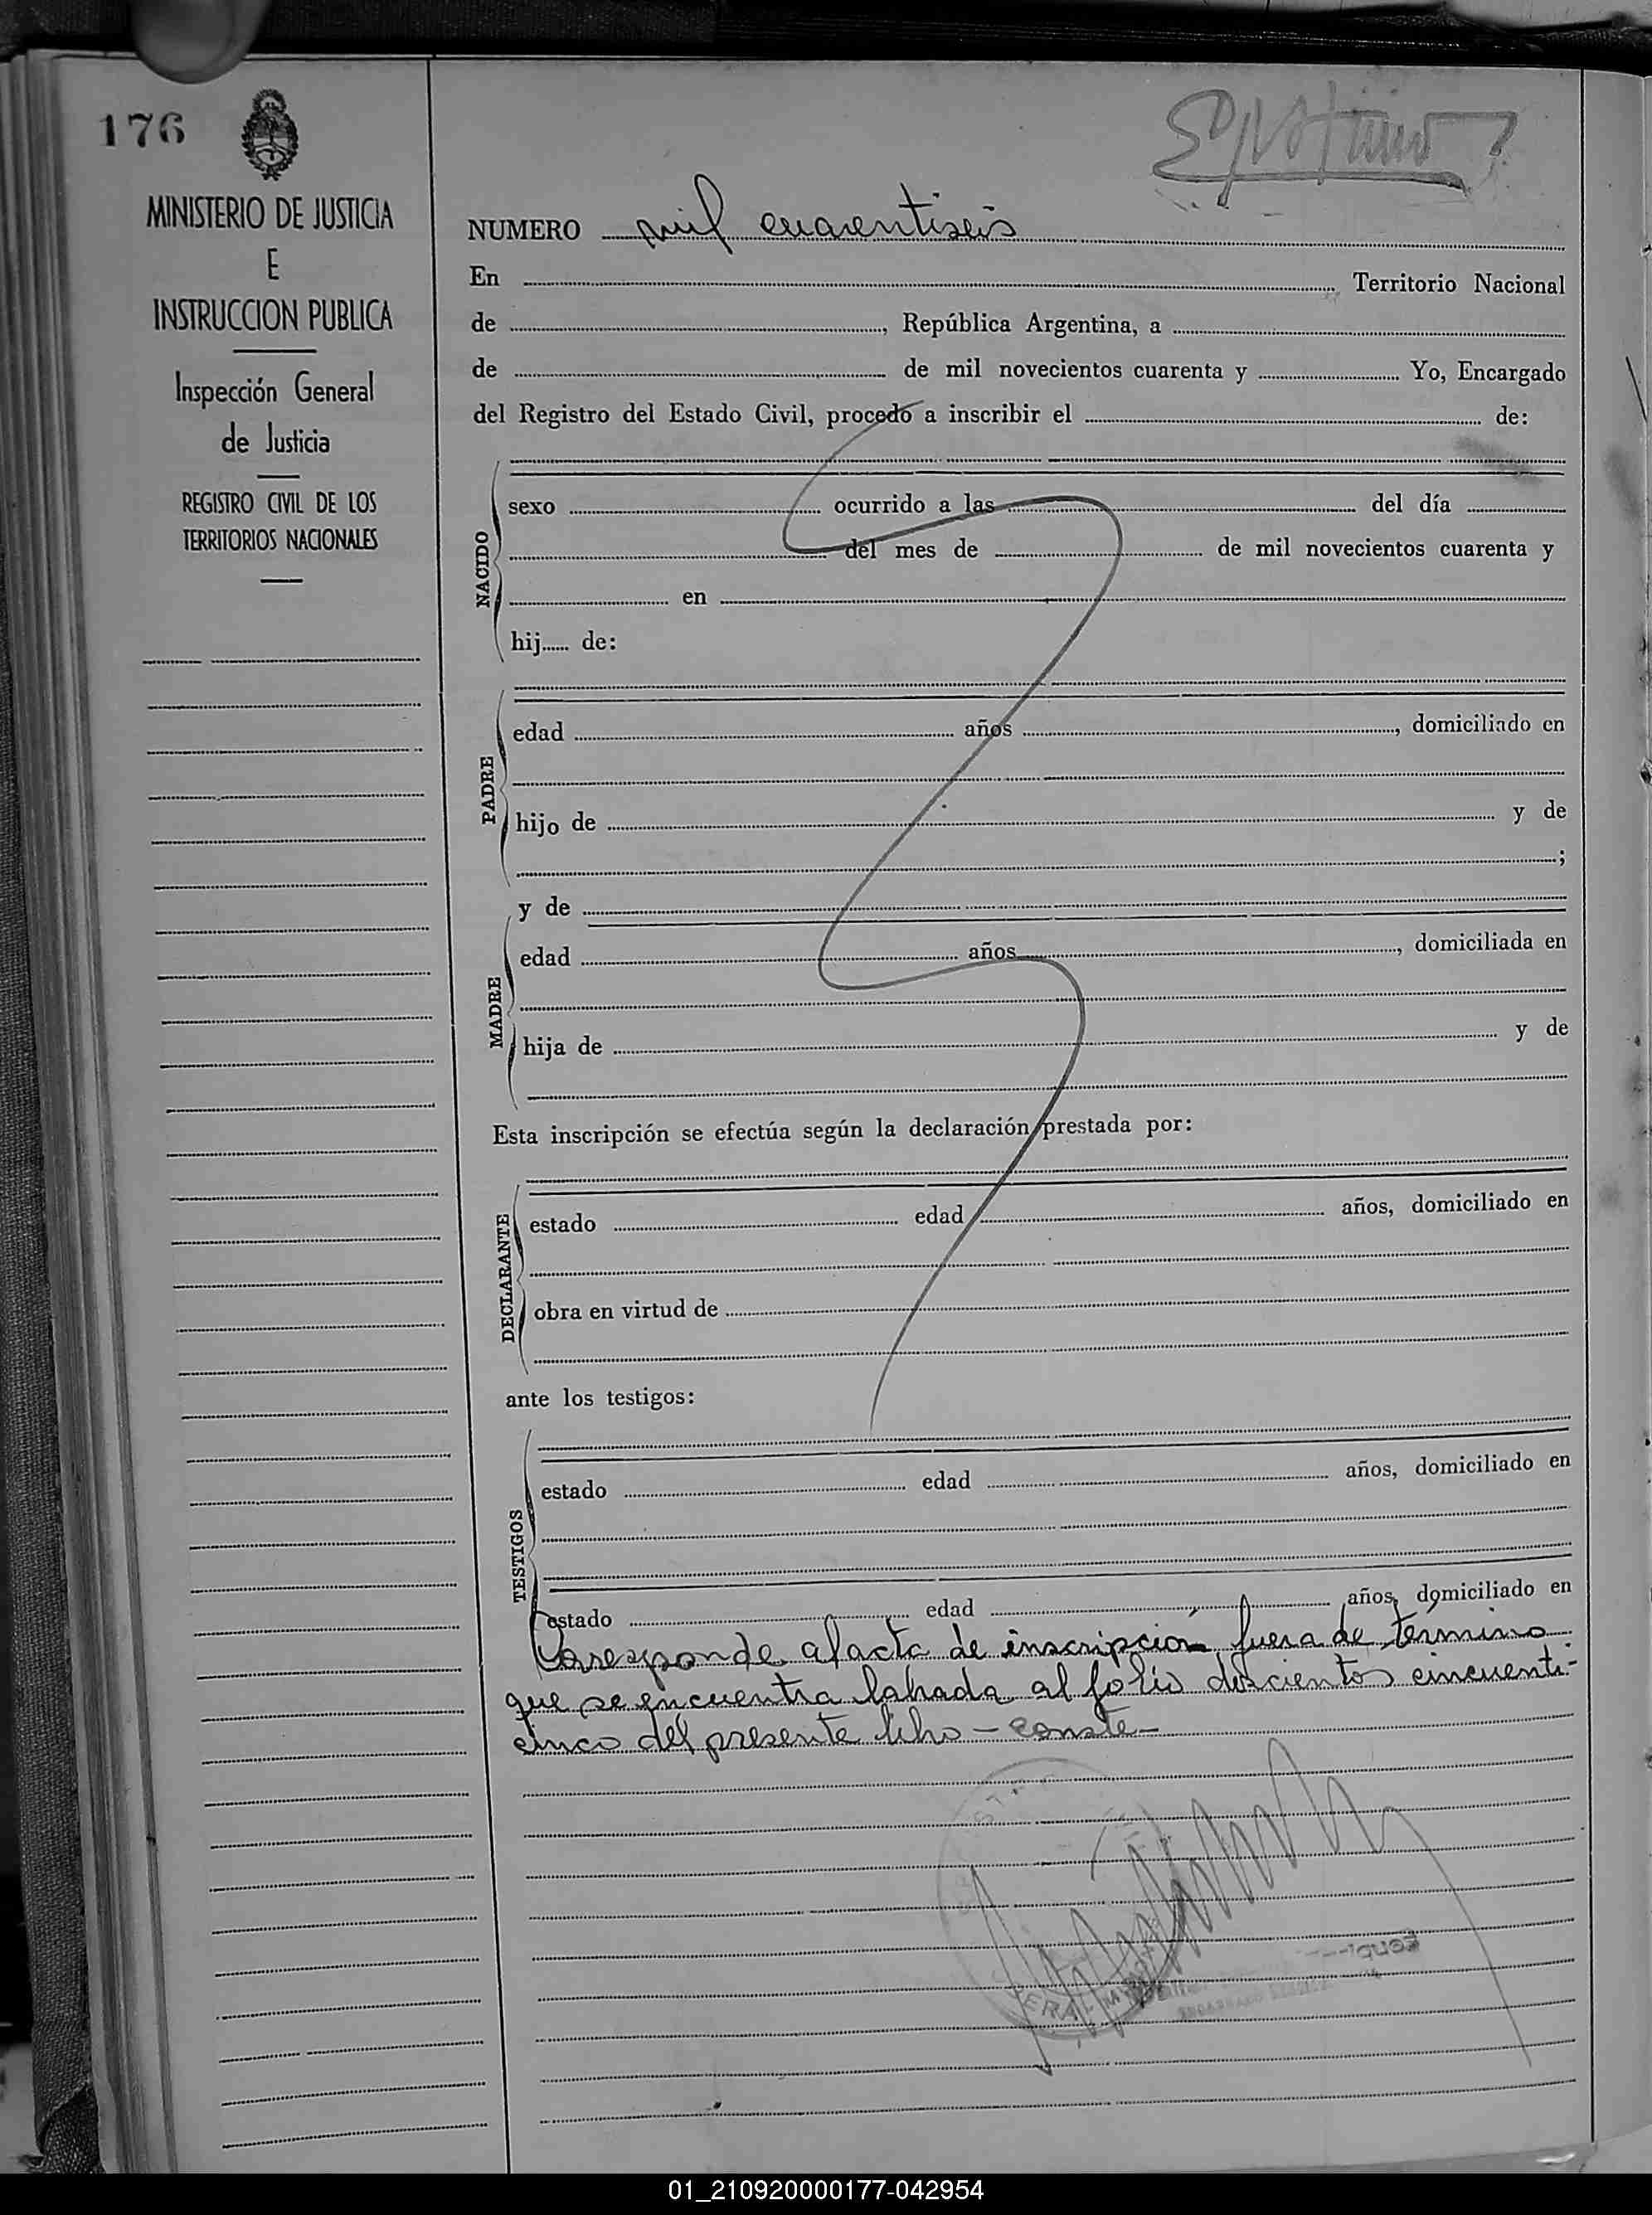 176
MINISTERIO DE JUSTICIA
E
INSTRUCCION PUBLICA
Inspección General
de Justicia
REGISTRO CIVIL DE LOS
TERRITORIOS NACIONALES
NUMERO mil cuarentiseis
En Territorio Nacional
de , República Argentina, a
de de mil novecientos cuarenta y Yo, Encargado
del Registro del Estado Civil, procedo a inscribir el de:
NACIDO
sexo ocurrido a las del día
del mes de de mil novecientos cuarenta y
en
hij...... de:
PADRE
edad años , domiciliado en
hijo de y de
;
y de
MADRE
edad años , domiciliada en
hija de y de
Esta inscripción se efectúa según la declaración prestada por:
DECLARANTE
estado edad años, domiciliado en
obra en virtud de
ante los testigos:
TESTIGOS
estado edad años, domiciliado en
estado edad años, domiciliado en
Corresponde al acta de inscripción fuera de término
que se encuentra labrada al folio doscientos cincuenti-
cinco del presente libro - conste -
01_210920000177-042954